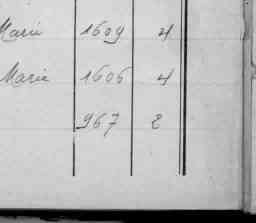 Marie 1609 4
Marie 1606 4
967 2